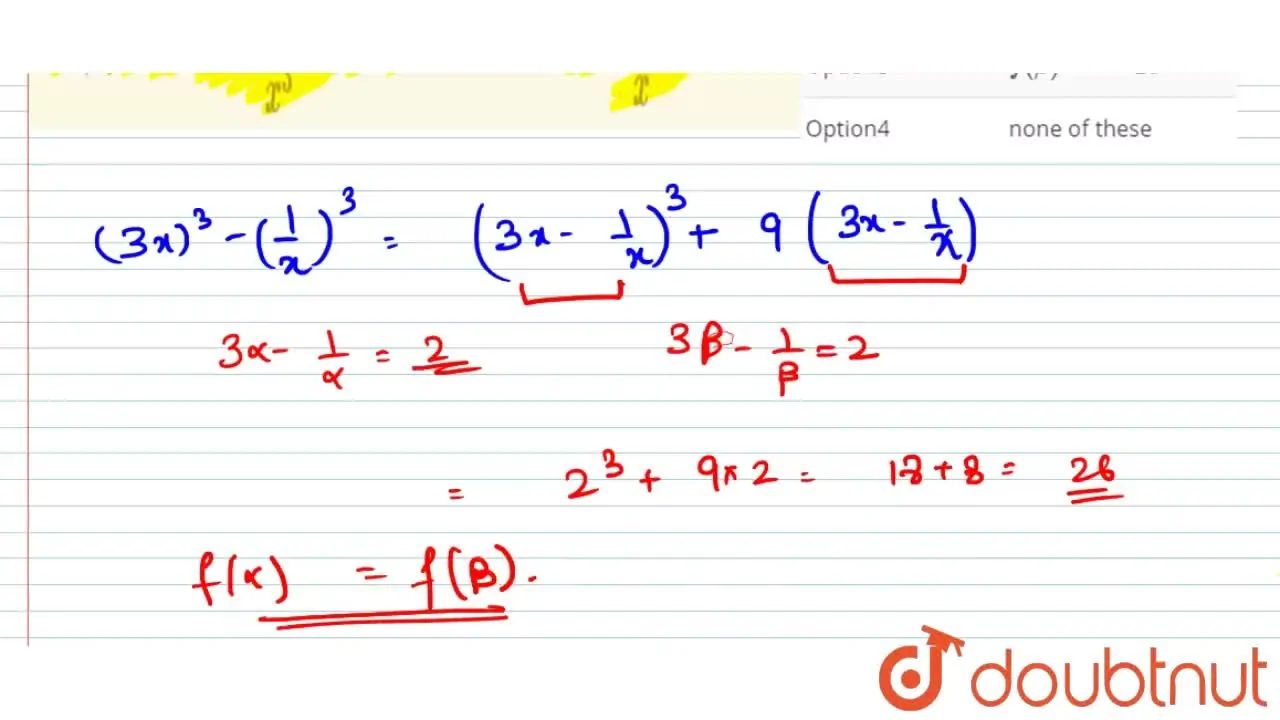 x³ x
Option4 none of these
(3x)³ - (1/x)³ = (3x - 1/x)³ + 9 (3x - 1/x)
3α - 1/α = 2 3β - 1/β = 2
= 2³ + 9x2 = 18 + 8 = 26
f(α) = f(β).
doubtnut